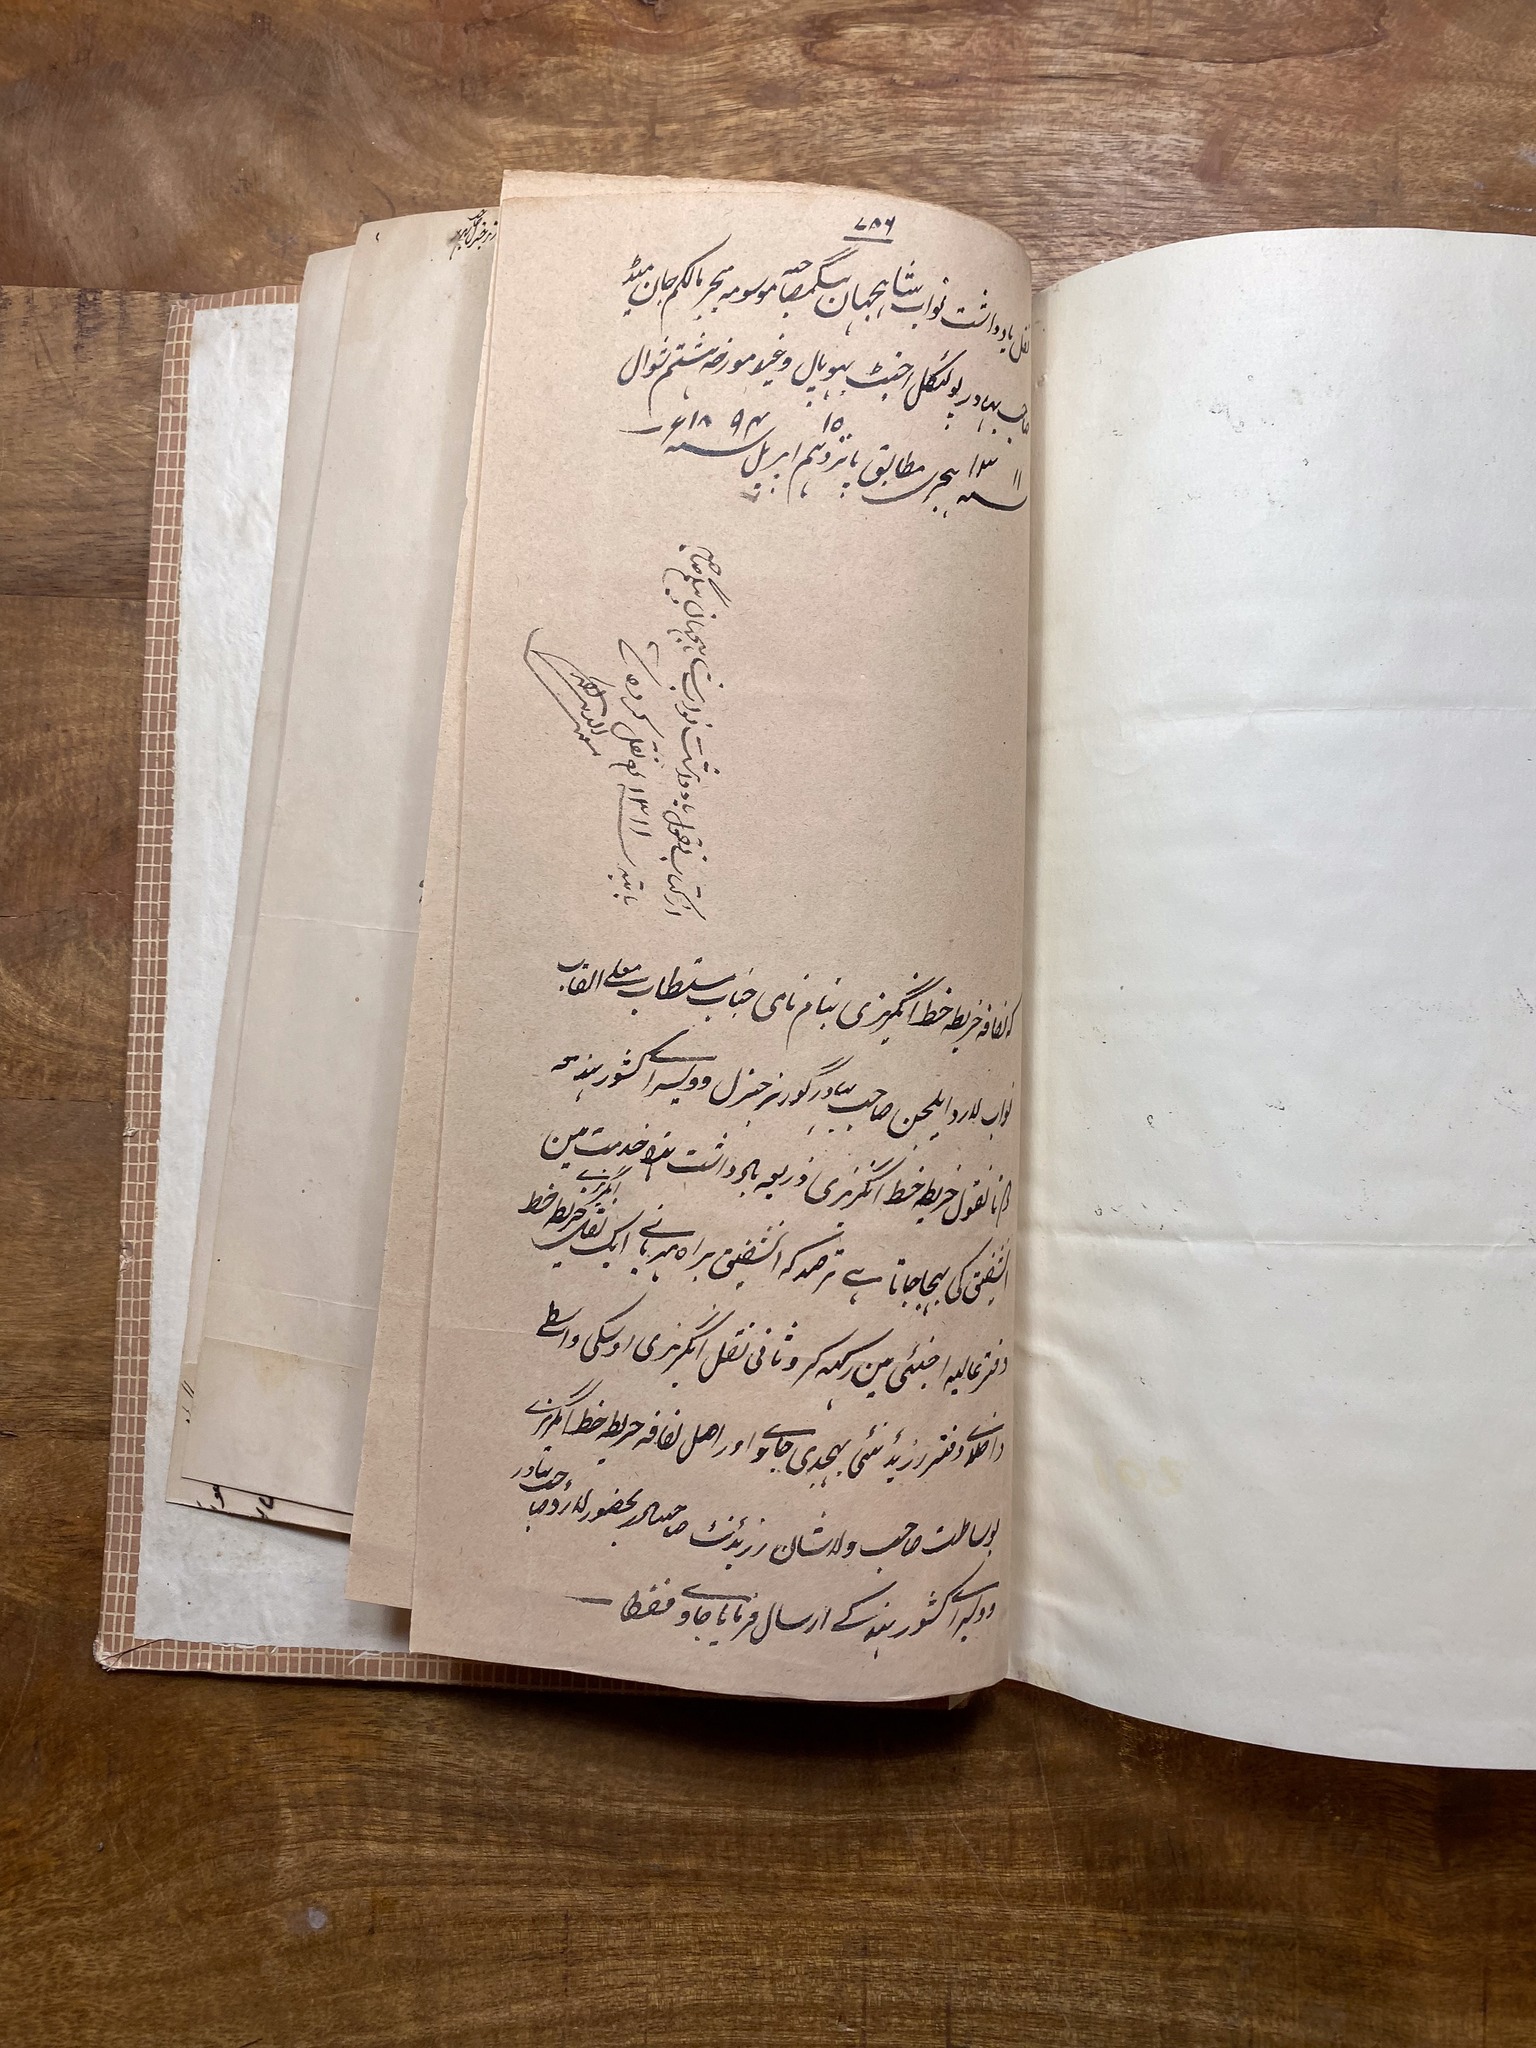 ۷۸۶
نقل یادداشت نواب شاہجہان بیگم صاحبہ موسومہ میجر مالکم جان میڈ
صاحب بہادر پولٹیکل اجنٹ بہوپال وغیرہ مورخہ ہشتم شوال
سنہ ۱۳۱۱ ہجری مطابق پانزدہم ۱۵ اپریل سنہ ۱۸۹۴ء
از کتاب نقول یادداشت نواب شاہجہان بیگم صاحبہ
بابتہ سنہ ۱۳۱۱ نقل کردہ
کہ لفافہ خریطہ خط انگریزی بنام نامی جناب مستطاب معلی القاب
نواب لارڈ ایلجن صاحب بہادر گورنر جنرل وویسراے کشور ہند معہ
نقول خریطہ خط انگریزی ذریعہ یادداشت ہذا خدمت مین
الشفیق کی بہیجا جاتا ہے ترصد کہ الشفیق براہ مہربانے ایک نقل خریطہ خط انگریزے
دفتر عالیہ اجنٹی مین رکہہ کر و ثانی نقل انگریزی اوسکی واسطے
داخلہ دفتر رزیڈنٹی بہیجدی جاے اور اصل لفافہ خریطہ خط انگریزے
بوساطت صاحب والاشان رزیڈنٹ صاحب بہادر بحضور لارڈ صاحب بہادر
وویسراے کشور ہند کے ارسال فرمایا جاوے فقط